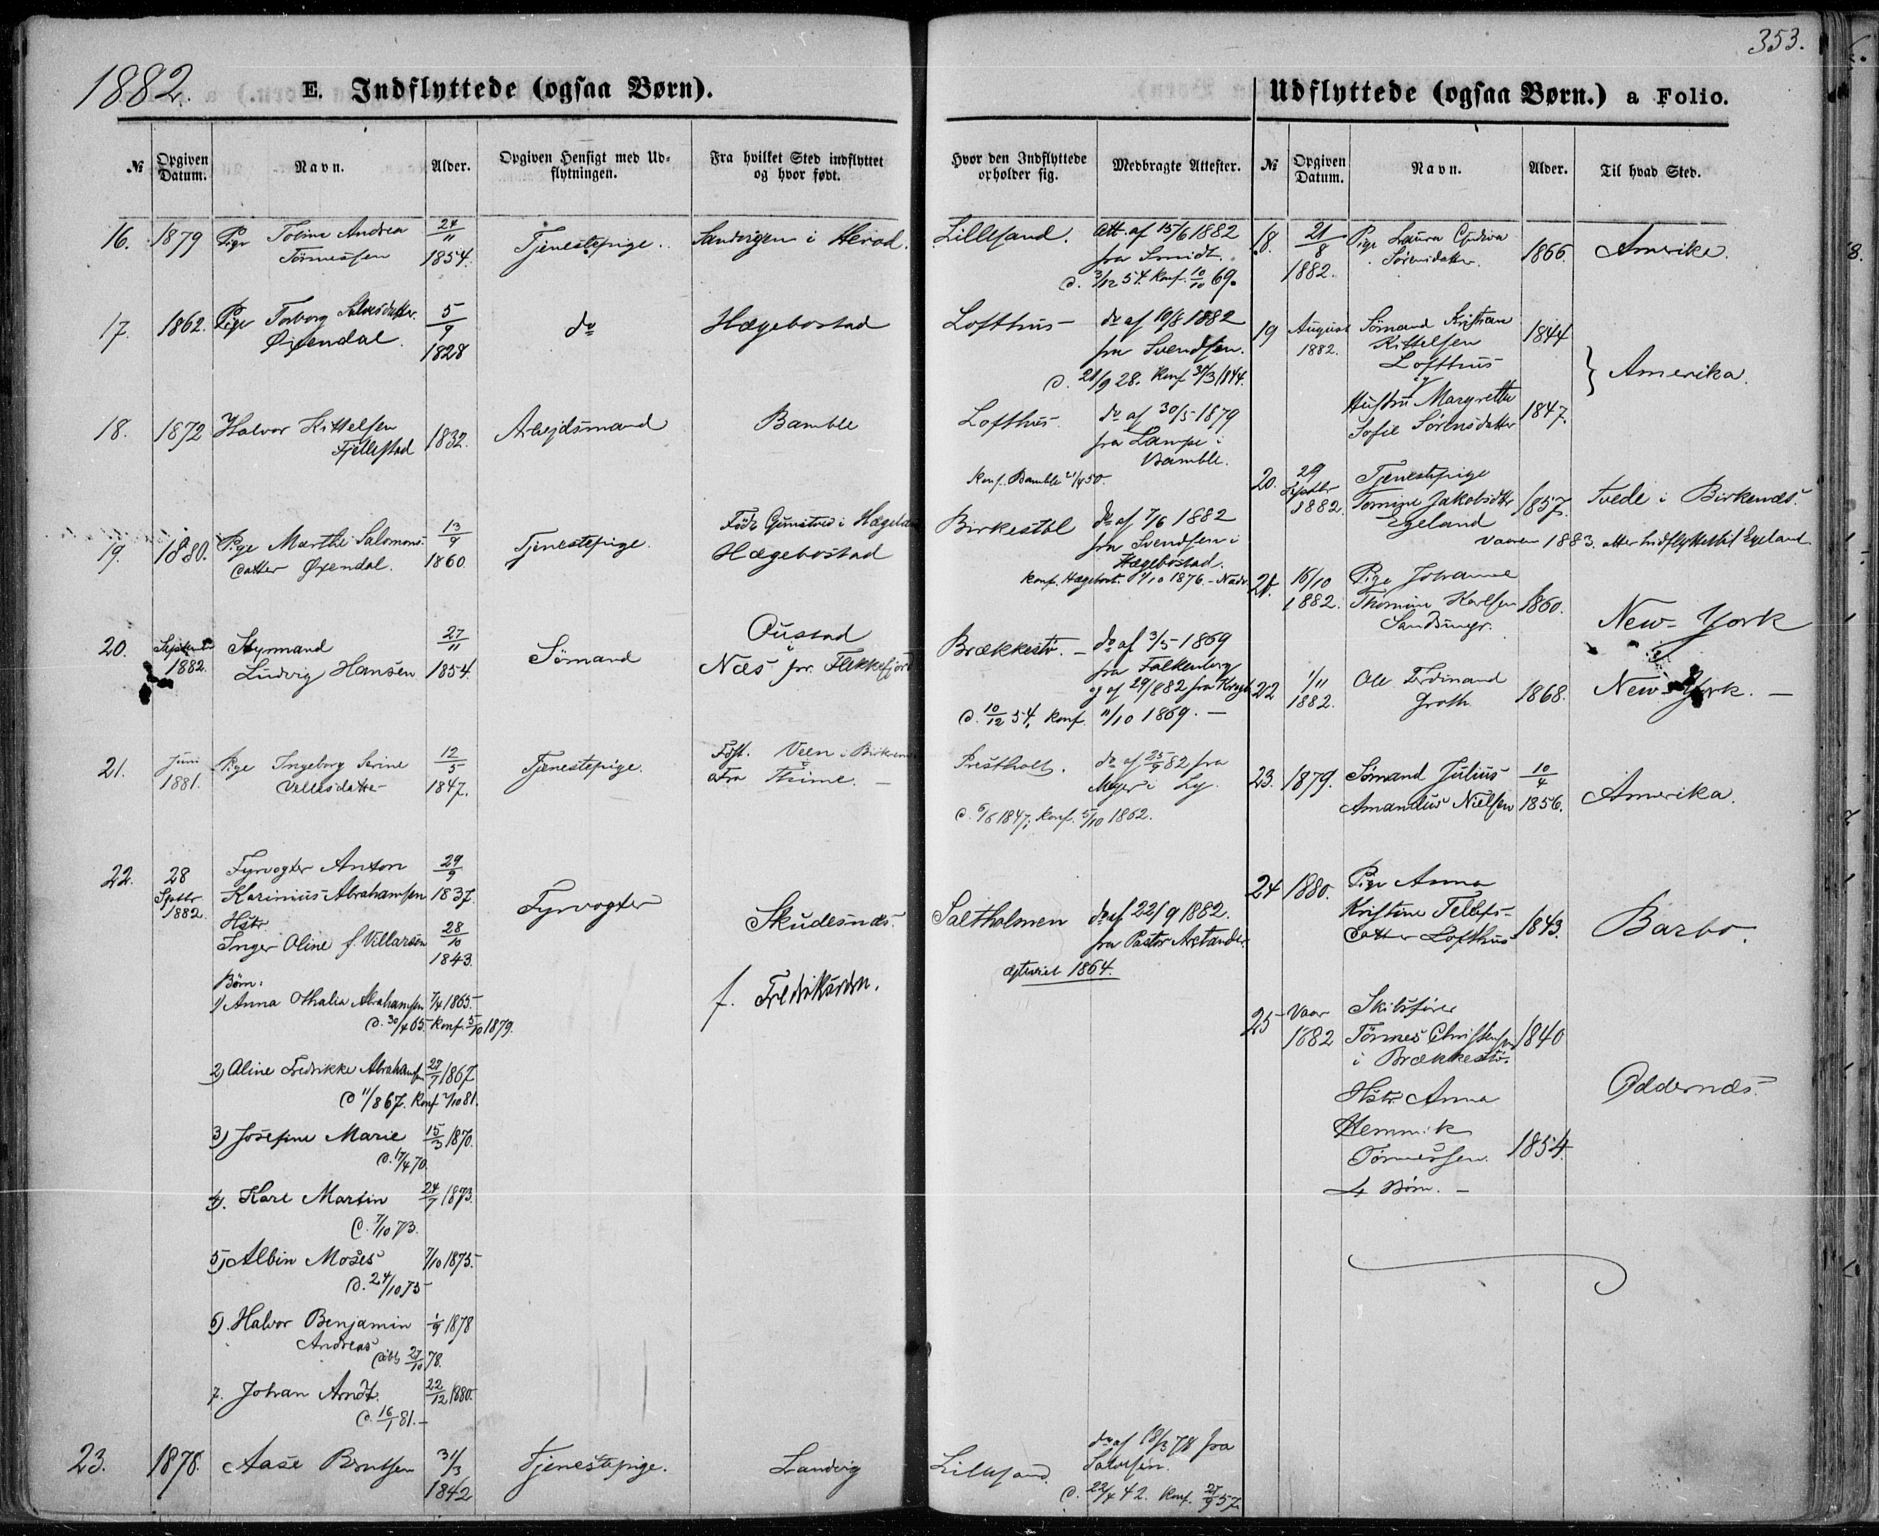 1882.
E. Indflyttede (ogsaa Børn).
№
Opgiven Datum.
Navn.
Alder.
Opgiven Hensigt med Udflytningen.
Fra hvilket Sted indflyttet og hvor født.
16. 1879 Pige Tobine Andrea 24/11 Tjenestepige. Sandvigen i Herad.
Tørressen 1854.
17. 1862. Pige Torborg Salvesdatter 5/9 do Hægebostad
Øiendal. 1828
18. 1872 Halvor Kittelsen 1832. Arbejdsmand Bamble
Fjellestad
19. 1880. Pige Marthe Salomons- 13/9 Tjenestepige. Født i Hægeland
datter Øiendal. 1860 Hægebostad
20. Septem 1882. Styrmand 27/11 Sømand Oustad i
Ludvig Hansen 1854. Næs pr. Flekkefjord
21. Juni 1881. Pige Ingeborg Serine 12/5 Tjenestepige. Født. Veen i Birkenes
1847. Fra Thime. –
22. 28 Septbr 1882. Fyrvogter Anton 29/9 Fyrvogter Skudesnæs.
Karinius Abrahamsen 1837.
Hstr. 28/10
Inger Oline f. Villarsen 1843.
f. Fredriksværn.
Børn:
1) Anna Othalia Abrahamsen 7/4 1865.
d. 30/4 65. Konf. 5/10 1879.
2) Aline Fredrikke Abrahamsen 27/7 1867
d 11/8 67. Konf 2/10 81.
3) Josefine Marie 15/3 1870.
d. 17/4 70.
4). Karl Martin 24/7 1873.
d. 7/10 73.
5) Albin Moses 7/10 1875.
d. 24/10 75
6). Halvor Benjamin 1/9 1878
Andreas
døbt 27/10 78.
7. Johan Arndt. 22/12 1880.
d. 16/1 81. –
23. 1878. Aase Berntsen 31/3 Tjenestepige. Landvig
1842
353.
Udflyttede (ogsaa Børn.) a Folio.
Hvor den Indflyttede opholder sig.
Medbragte Attester.
№
Opgiven Datum.
Navn.
Alder.
Til hvad Sted.
Lillesand. Att. af 15/6 1882
fra Smidt.
d. 3/12 54. Konf. 10/10 69.
Lofthus do af 19/8 1882
fra Svendsen.
d. 21/9 28. Konf 31/3 1844.
Lofthus do af 30/5 1879
fra Lampe i
Bamble.
Konf. Bamble 21/4 50.
Birkestøl do af 7/6 1882
fra Svendsen i
Hægebostad.
Konf. Hægebost. 1/10 1876.
Brækkestø. – do af 3/5 1869
fra Falkenberg
og af 29/8 82 fra
d. 10/12 54, Konf. 11/10 1869. –
Prestholt. do af 25/9 82 fra
Meyer i Ly.
d. 6/6 1847; Konf. 5/10 1862.
Saltholmen do af 22/9 1882.
fra Pastor Arstander.
ægteviet 1864.
Lillesand. do af 18/3 78 fra
Salvesen.
d. 22/4 42. Konf. 27/9 57.
18. 21/8 1882. Pige Laura 1866 Amerika.
Sørensdatter.
19 August 1882. Sømand Kristian 1844
Kittelsen
Lofthus
og
Hustru Margrethe 1847.
Sofie Sørensdatter
} Amerika.
20. 29 Septbr 1882. Tjenestepige
Tomine Jakobsdtr 1857. Tvede i Birkenæs.
Egeland
vaaren 1883. atter indflyttet til Egeland
21. 16/10 1882. Pige Johanne
Thomine Karlsen 1860. New-York
22 1/11 1882. Ole Ferdinand
Groth. 1868. New-York. –
23. 1879. Sømand Julius 10/4
Amandus Nielsen 1856. Amerika.
24 1880. Pige Anna
Kristine Tellefs-
datter Lofthus 1843. Barbo.
25 Vaar 1882 Skibsfører
Tørres Christensen 1840
i Brækkestø.
Hstr. Anna
Tørressen. 1854.
4 Børn. –
Oddernæs.